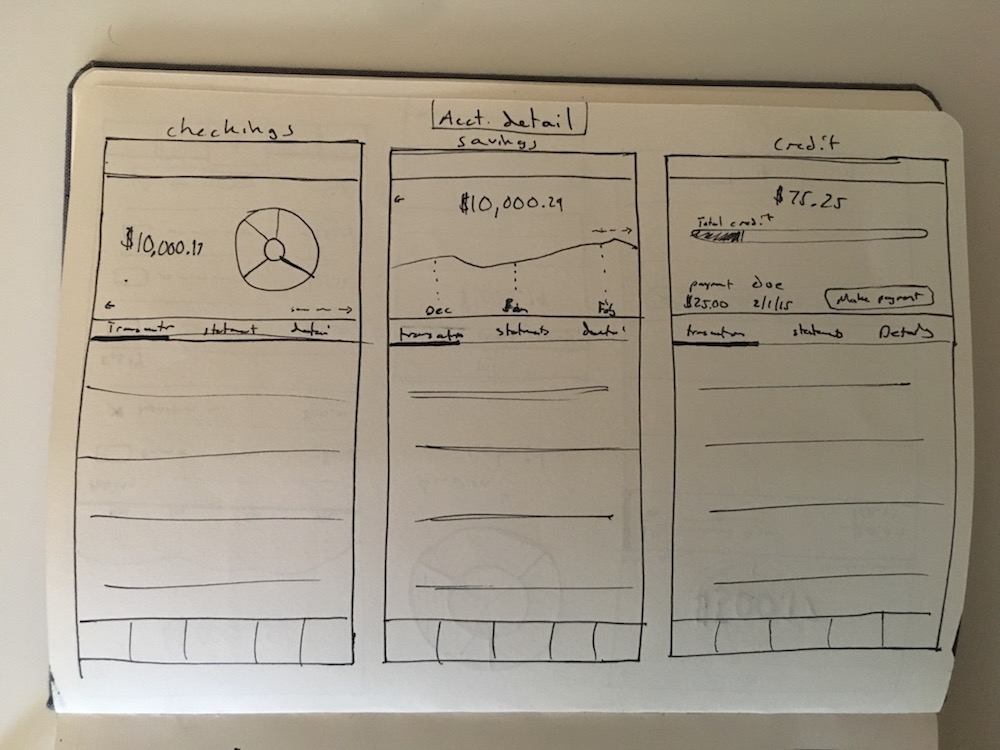 Acct. detail
checkings
savings
credit
$10,000.17
Transactn
statement
detail
$10,000.29
Dec
Jan
Feb
transactn
statements
detail
$75.25
Total credit
payment Due
$25.00 2/1/15
Make payment
transaction
statements
Details